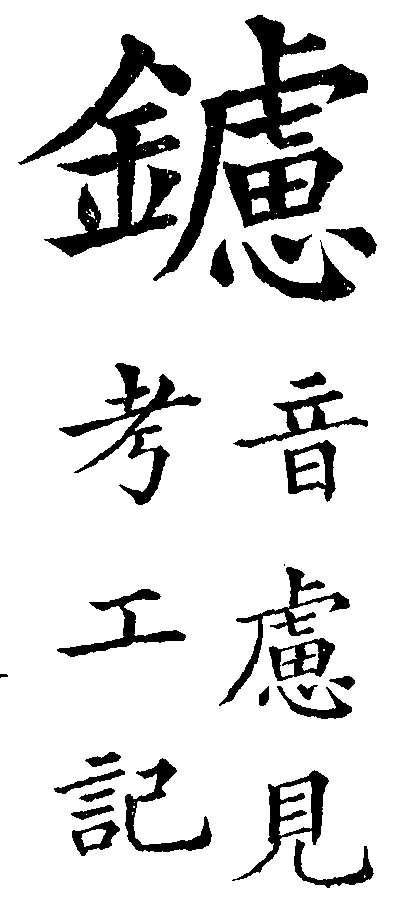 鑢
音慮見
考工記